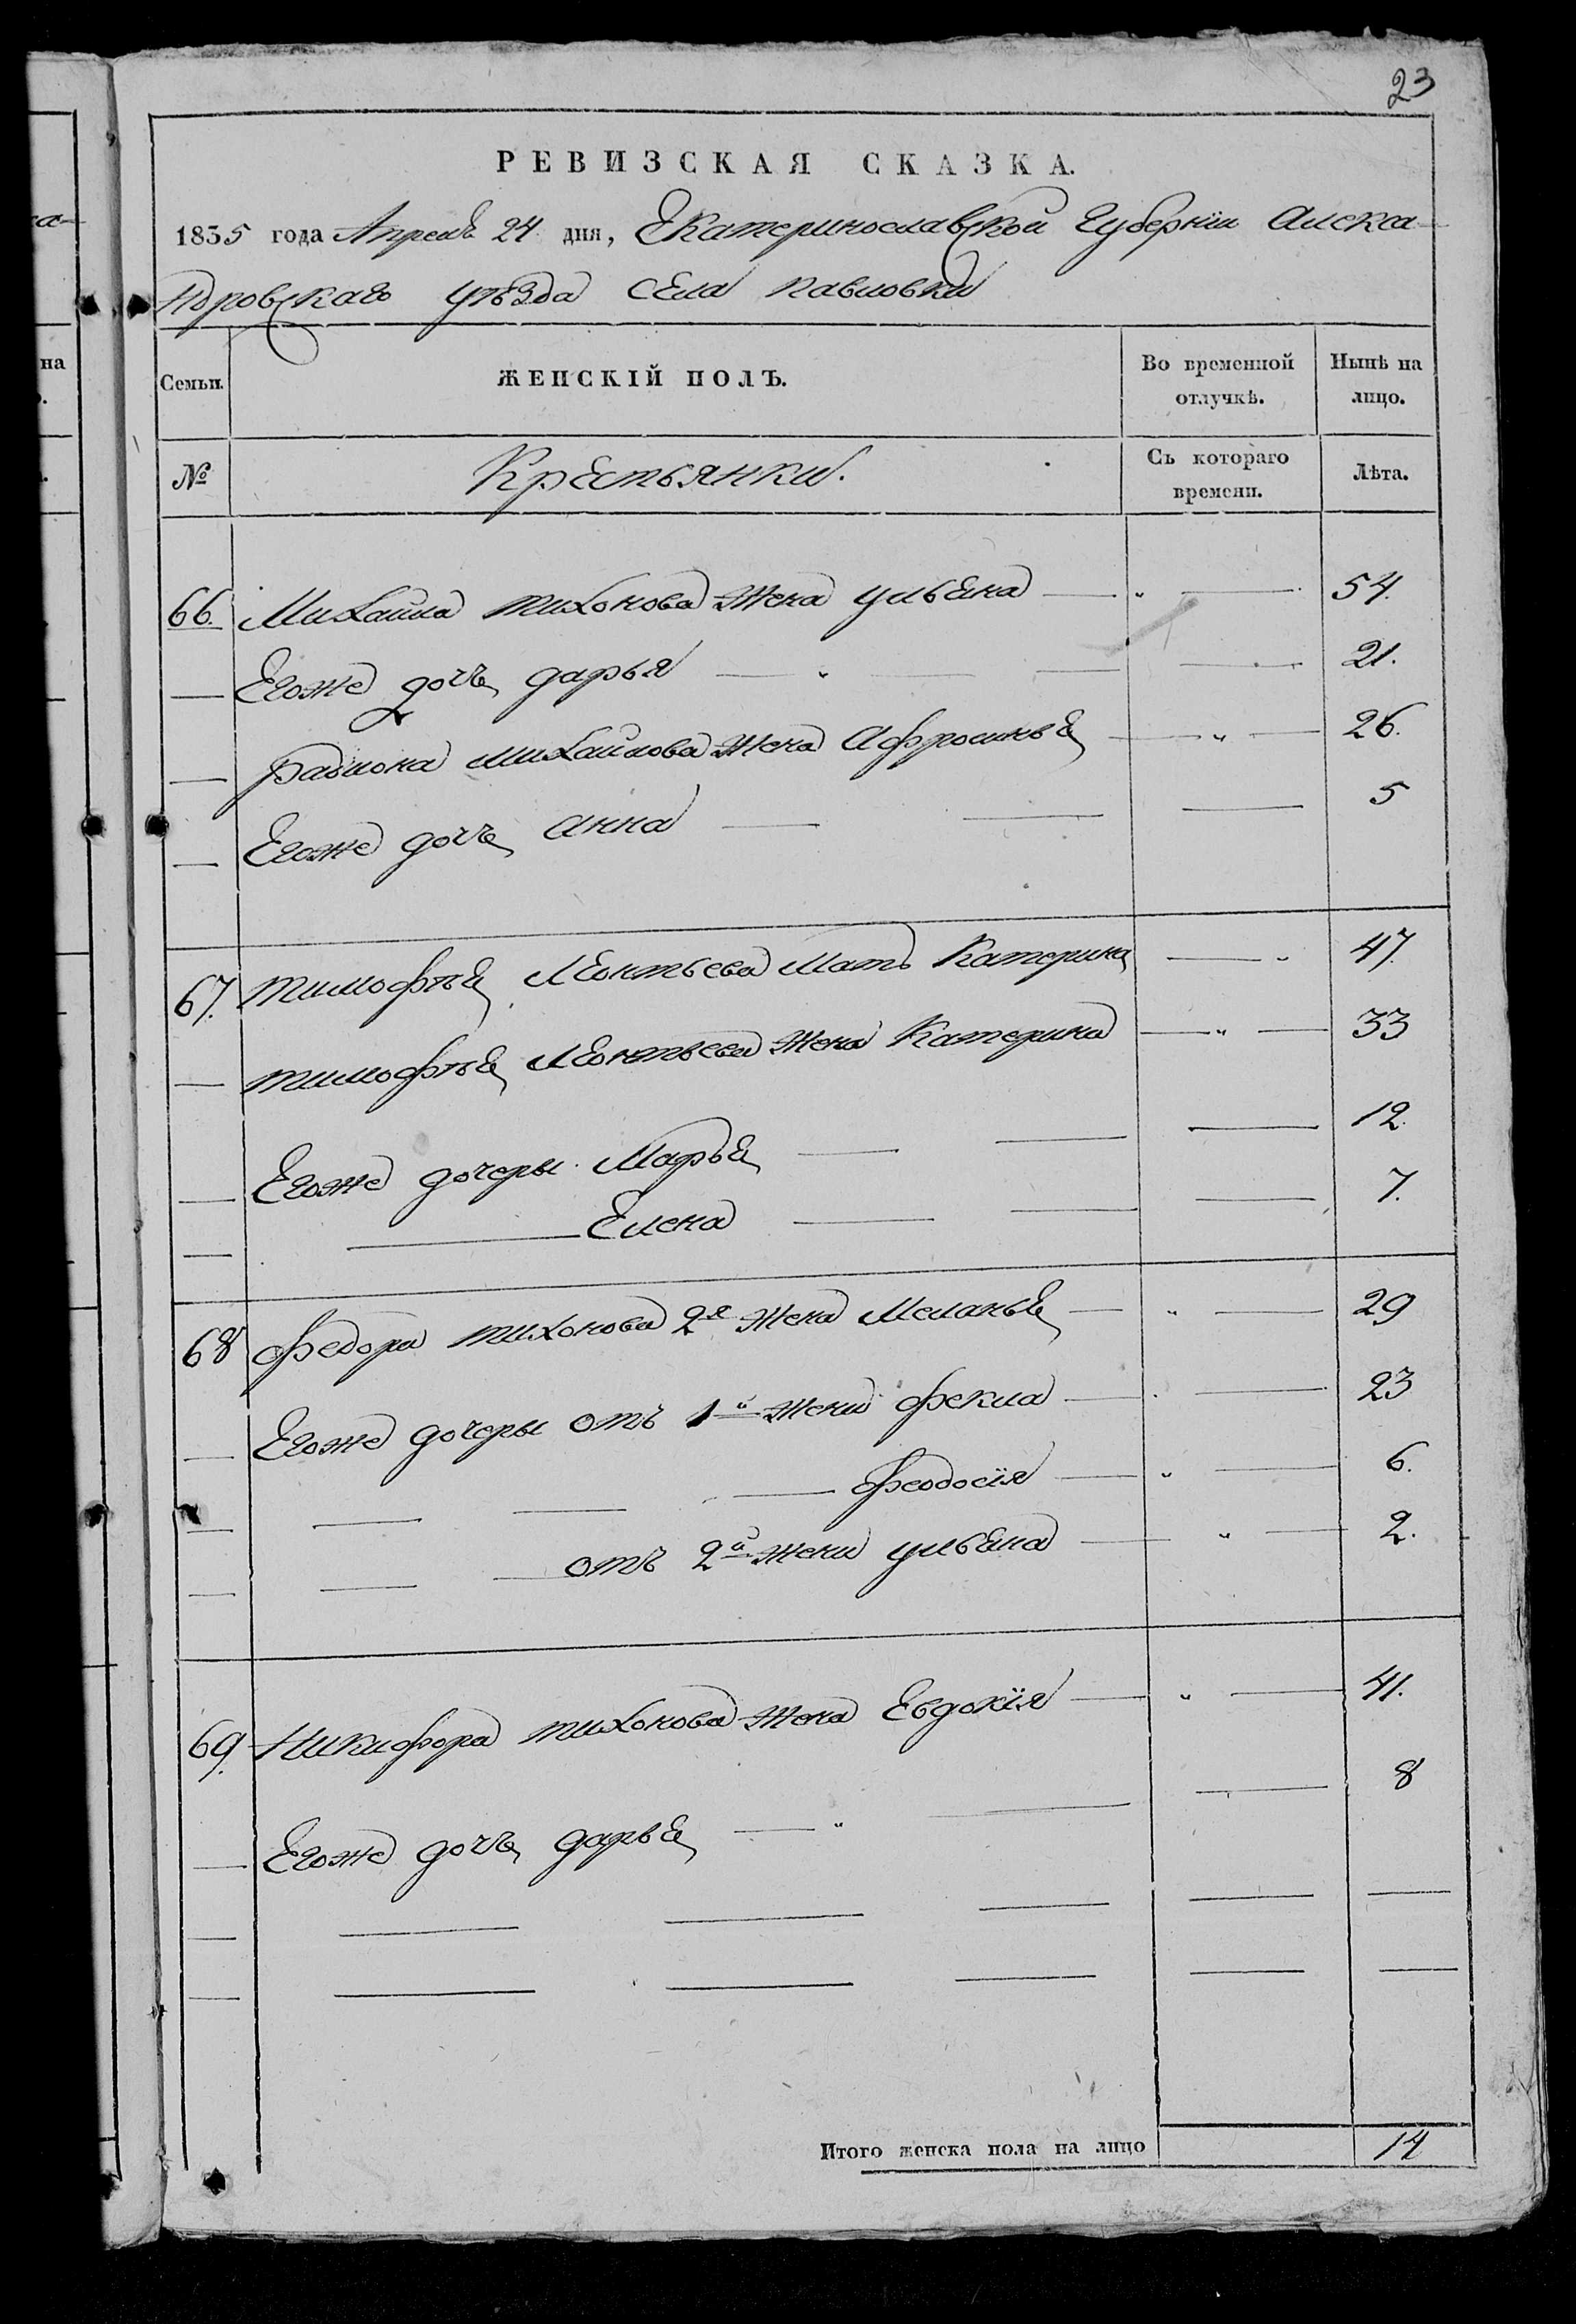 23
РЕВИЗСКАЯ СКАЗКА.
1835 года Апреля 24 дня, Екатеринославской Губернїи Алекса-
ндровскаго уѣзда села Павловки
Семьи. ЖЕНСКІЙ ПОЛЪ. Во временной отлучкѣ. Нынѣ на лицо.
№ Крестьянки. Съ котораго времени. Лѣта.
66. Михайла тихонова жена ульяна — " — 54.
— Егоже дочь дарья — " — — 21.
— Радиона михайлова жена Афросинья — " — 26.
— Егоже дочь анна — — — 5
67. тимофѣя Леонтьева мать Катерина — " 47.
— тимофѣя Леонтьева жена Катерина — " — 33
— Егоже дочеры Марья — — — 12.
— — Елена — — — 7.
68 федора тихонова 2я жена Меланья — " — 29
— Егоже дочеры отъ 1й жени фекла — — 23
— — — — феодосїя — " — 6.
— — — отъ 2й жени ульяна — " — 2.
69. Никифора тихонова жена Евдокїя — " — 41.
— Егоже дочь дарья — " — — 8
— — — — — —
— — — — — —
Итого женска пола на лицо 14
на